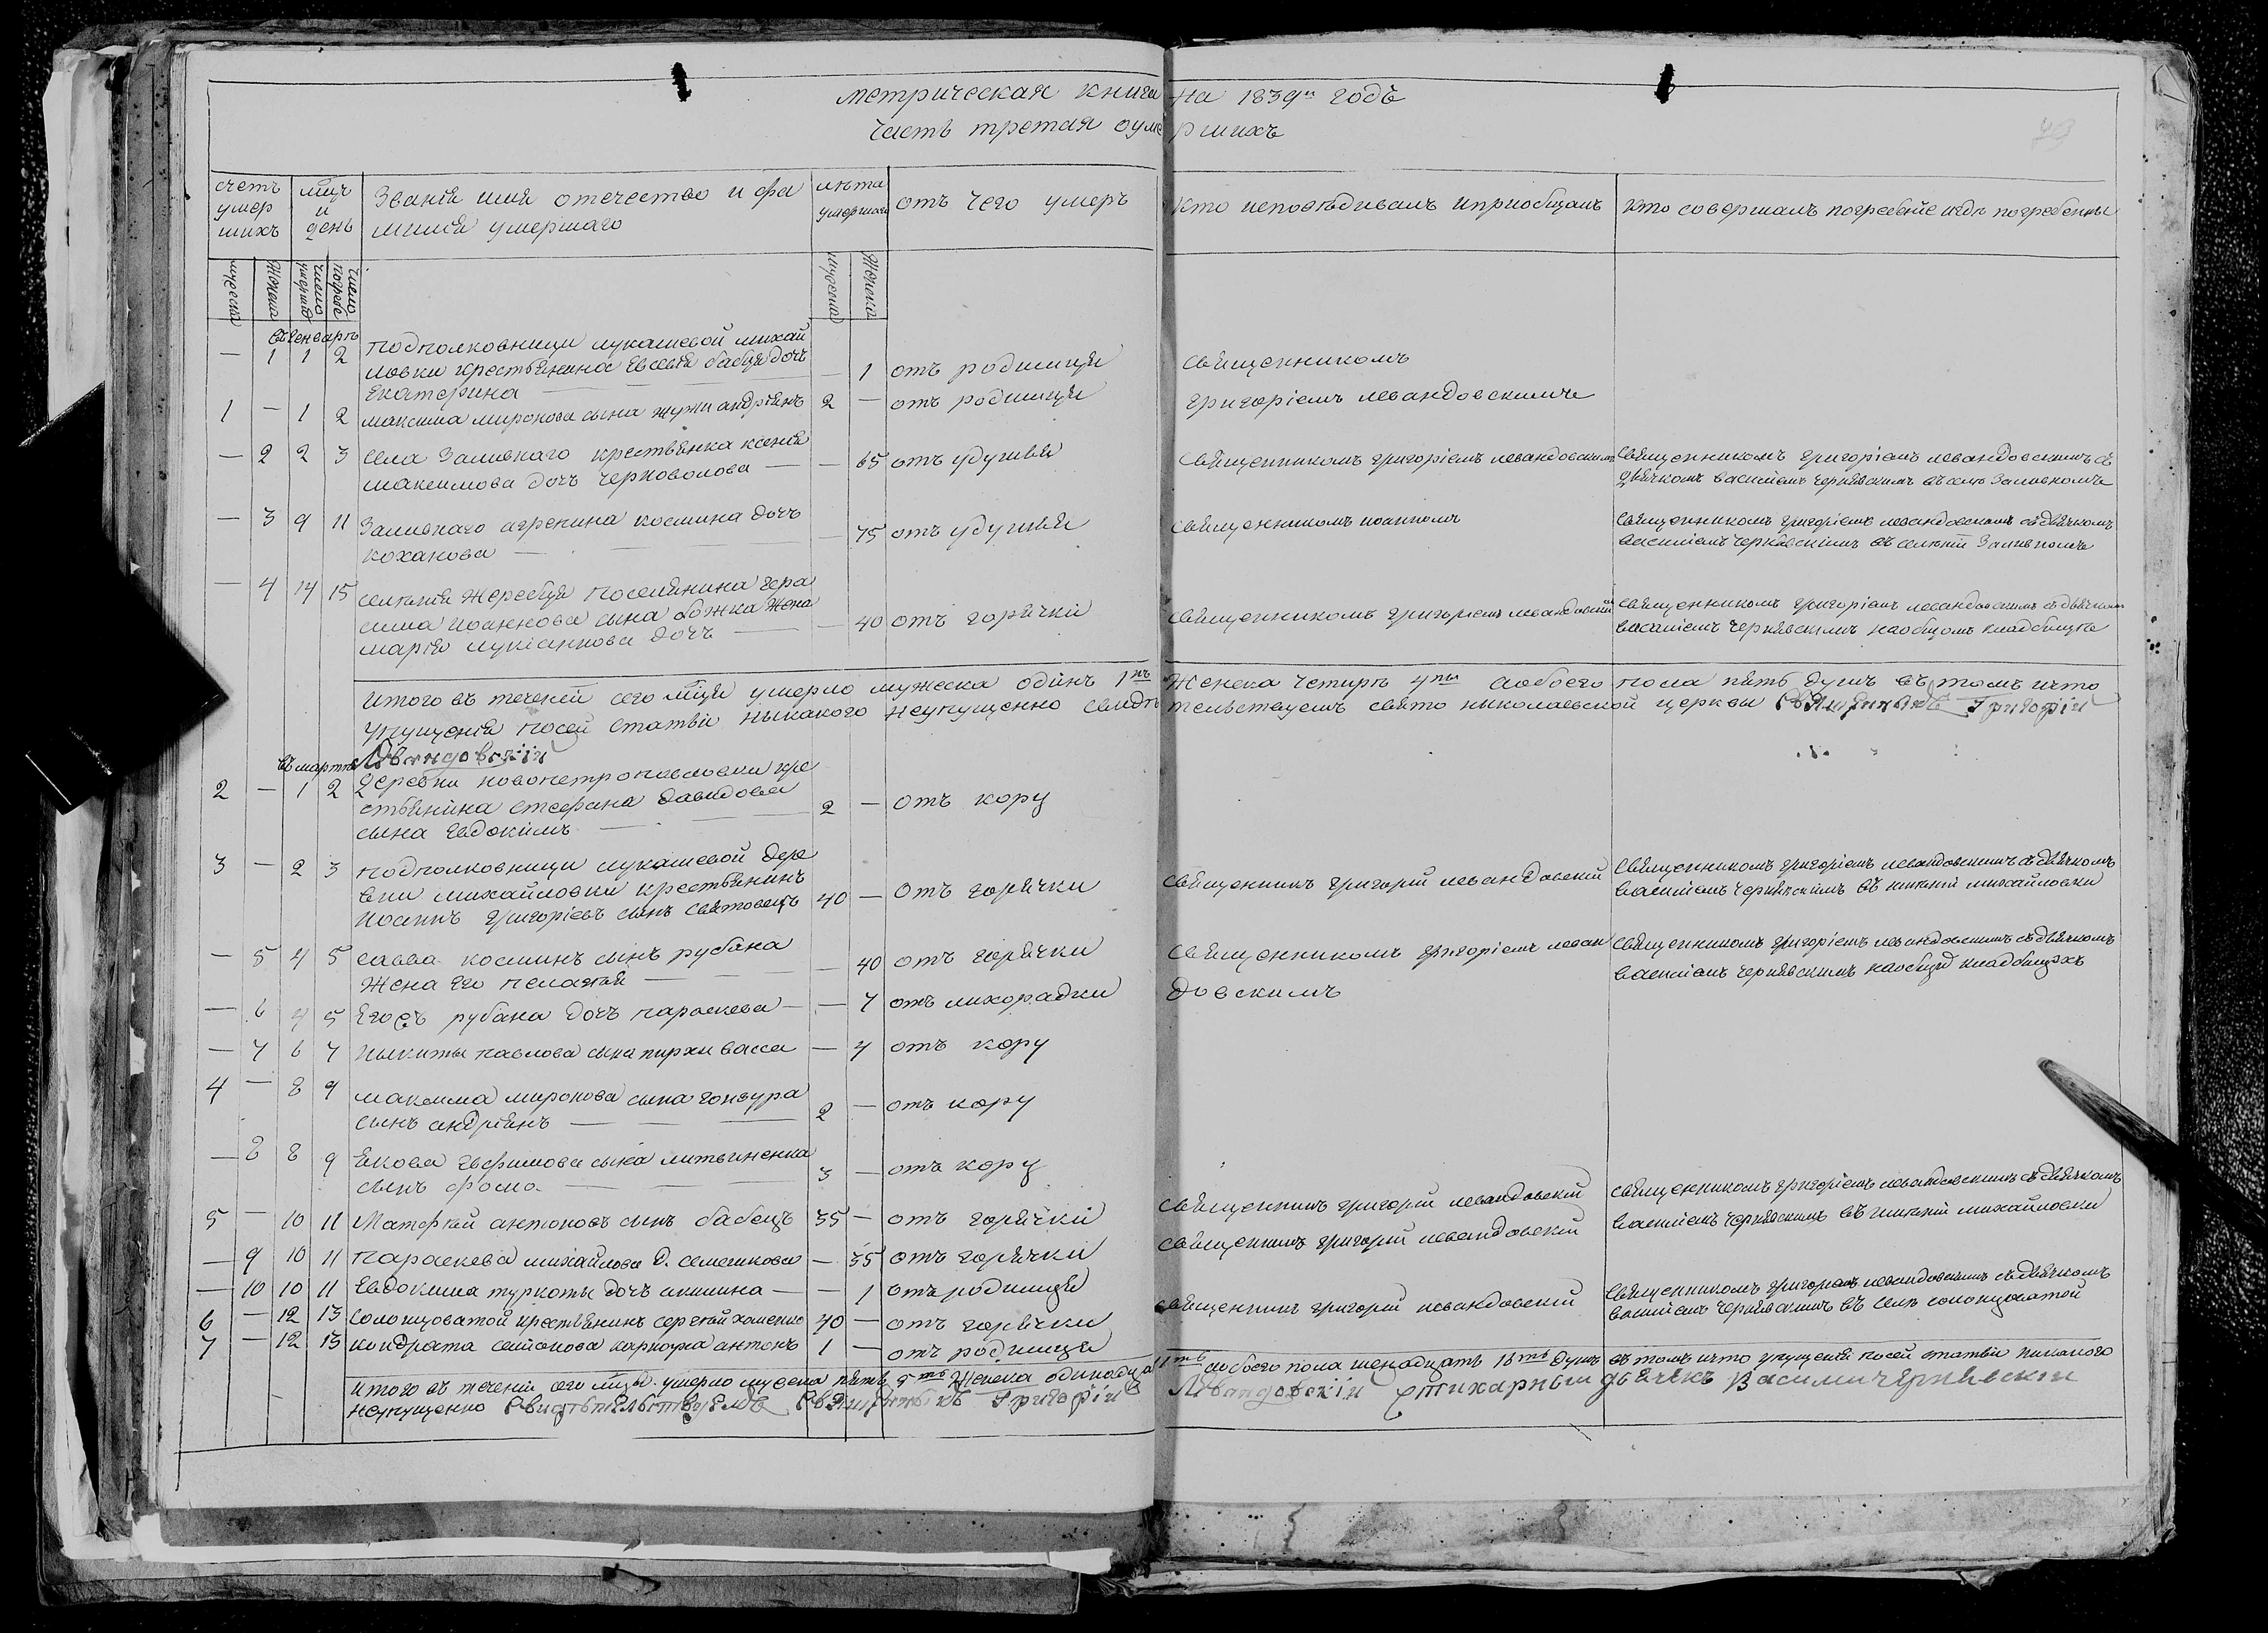 метрическая книга на 1839й годъ
Часть третая оуме ршихъ
счетъ умер шихъ
мцъ и день
Званія имя отечество и фа милія умершаго
лета умершаго
отъ чего умеръ
кто исповѣдивалъ и приобщалъ
кто совершалъ погребеніе и гдѣ погребенны
мужеска
Женска
число умертв
число погребе
мужески
Женски
въ генварѣ
— 1 1 2 подполковници лукашевой михай
ловки крествянина Евсевія бабця дочь
Екатерина — — 1 отъ родимця Священникомъ
1 — 1 2 максима миронова сына жужи андріянъ 2 — отъ родимця григоріемъ левандовскимъ
— 2 2 3 села Заливнаго крествянка ксенія
максимова дочъ Черноволова — — 65 отъ удушья Священникомъ григоріемъ левандовскимъ Священникомъ григоріемъ левандовскимъ съ
дьячкомъ василіемъ чернявскимъ въ селѣ Заливномъ
— 3 9 11 Заливнаго агрепина космина дочъ
коханова — — 75 отъ удушья Священникомъ иоанномъ Священникомъ григоріемъ левандовскимъ съ дьячкомъ
василіемъ чернявскимъ въ селеніи Заливномъ
— 4 14 15 селенія Жеребця поселянина гера
сима иоаннова сына божка жена
марія лукіанкова дочъ — — 40 отъ горячки Священникомъ григоріемъ левандовскимъ Священникомъ григоріемъ левандовскимъ съ дьячкомъ
василіемъ чернявскимъ на общомъ кладбищѣ
Итого въ теченій сего мця умерло мужеска одинъ 1нъ Женска четирѣ 4ре а обоего пола пять душъ въ томъ что
упущенія посей статьи никакого неупущенно свидѣтельствуемъ свято николаевской церкви Священникъ Григорій
Левандовскій
въ мартѣ
2 — 1 2 деревни новопетропавловки кре
ствянина стефана давидова
сына Евдокимъ — 2 — отъ кору
3 — 2 3 подполковници лукашевой дере
вни михайловки крествянинъ
иоаннъ григоріевъ сынъ святовецъ 40 — отъ горячки Священникъ григорій левандовскій Священникомъ григоріемъ левандовскимъ съ дьячкомъ
василіемъ чернявскимъ въ имѣніи михайловки
— 5 4 5 савва косминъ сынъ рубана
жена его пелагія — — 40 отъ горячки Священникомъ григоріемъ леван Священникомъ григоріемъ левандовскимъ съ дьячкомъ
василіемъ чернявскимъ на общихъ кладбищахъ
— 6 4 5 Егоръ рубана дочъ параскева — — 7 отъ лихорадки довскимъ
— 7 6 7 никиты павлова сына пирхи васса — 4 отъ кору
4 — 8 9 максима миронова сына гонзура
сынъ андріянъ — 2 — отъ кору
— 8 8 9 Якова Евфимова сына литвиненка
сынъ фома — 3 — отъ кору
5 — 10 11 Матфей антоновъ сынъ бабецъ 35 — отъ горячки Священникъ григорій левандовскій Священникомъ григоріемъ левандовскимъ съ дьячкомъ
василіемъ чернявскимъ въ имѣніи михайловки
— 9 10 11 параскева михайлова д. семешкова — 35 отъ горячки Священникъ григорій левандовскій
— 10 10 11 Евдокима туркоты дочъ акилина — — 1 отъ родимця
6 — 12 13 солонцоватой крествянинъ сергей хоменко 40 — отъ горячки Священникъ григорій левандовскій Священникомъ григоріемъ левандовскимъ съ дьячкомъ
василіемъ чернявскимъ въ селѣ солонцоватой
7 — 12 13 кондрата семонова карнауха антонъ 1 — отъ родимця
Итого въ теченіи сего мця умерло мужеска пять 5ть Женска одинадцать 11ть а обоего пола шенадцать 16ть душъ въ томъ что упущенія посей статьи никакого
неупущенно Свидѣтельствуемъ Священникъ Григорій Левандовскій стихарный дьячекъ Василий Чернявский